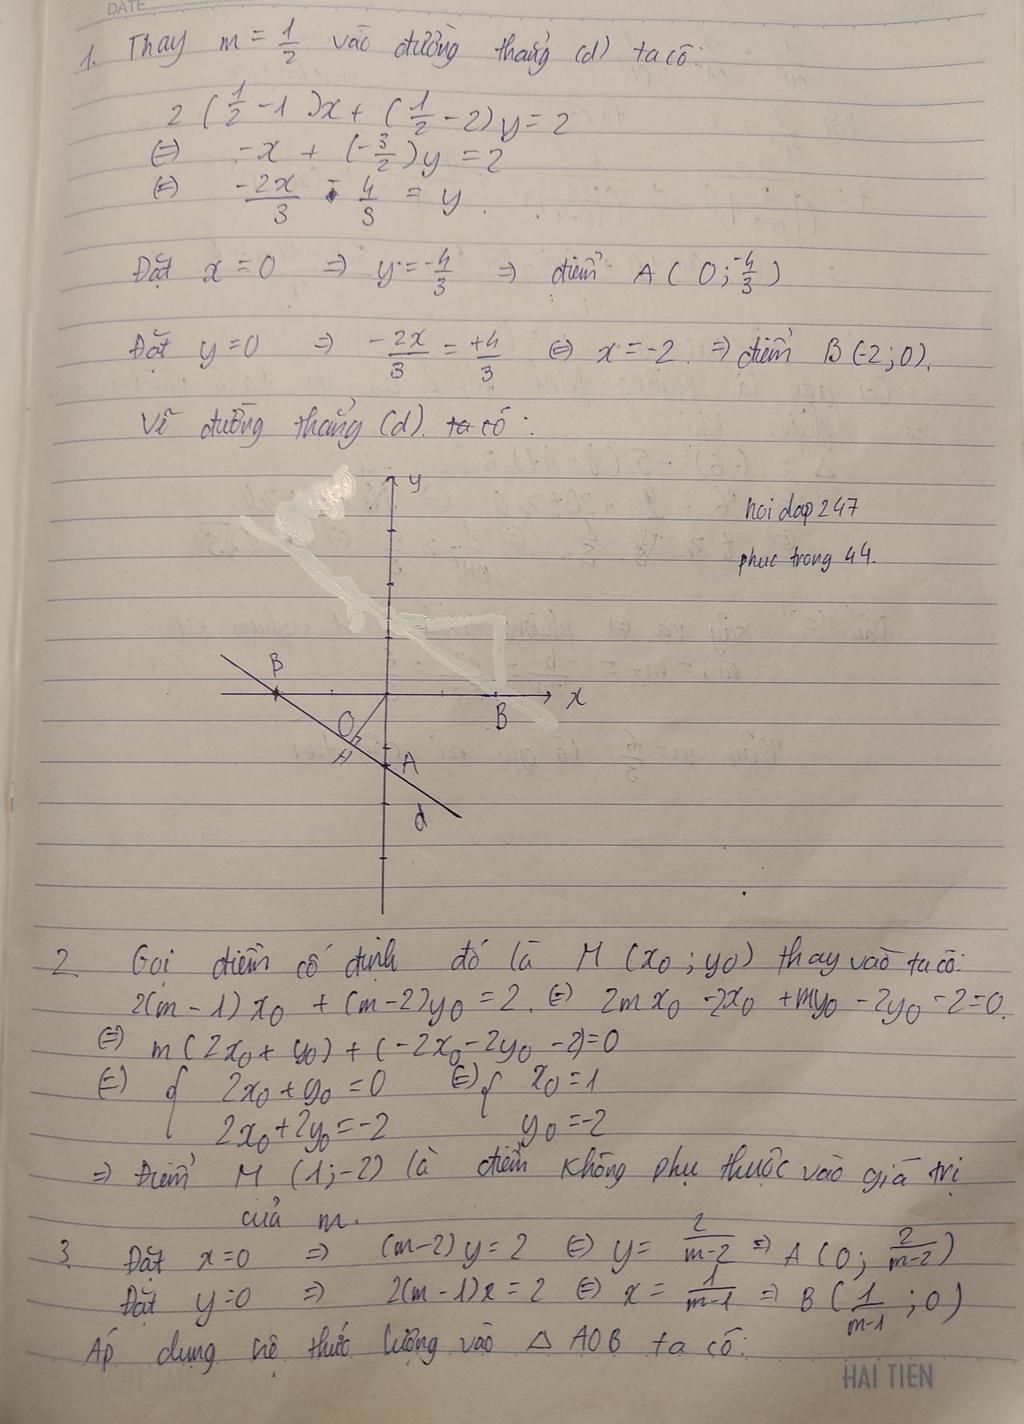 DATE
1. Thay m = 1/2 vào đường thẳng (d) ta có:
2 (1/2 - 1)x + (1/2 - 2)y = 2
(=) -x + (-3/2)y = 2
(=) -2x/3 - 4/3 = y.
Đặt x = 0 => y = -4/3 => điểm A (0; -4/3)
Đặt y = 0 => -2x/3 = +4/3 (=) x = -2 => điểm B (-2; 0).
Vẽ đường thẳng (d). ta có:
y
hoi dap 247
phuc trong 44.
B
x
B
O
H
A
d
2. Gọi điểm cố định đó là M (x0; y0) thay vào ta có:
2(m - 1) x0 + (m - 2)y0 = 2. (=) 2mx0 - 2x0 + my0 - 2y0 - 2 = 0.
(=) m(2x0 + y0) + (-2x0 - 2y0 - 2) = 0
(=) { 2x0 + y0 = 0 (=) { x0 = 1
2x0 + 2y0 = -2 y0 = -2
=> Điểm M (1; -2) là điểm không phụ thuộc vào giá trị
của m.
3. Đặt x = 0 => (m - 2) y = 2 (=) y = 2/(m-2) => A (0; 2/(m-2))
Đặt y = 0 => 2(m - 1)x = 2 (=) x = 1/(m-1) => B (1/(m-1); 0)
Áp dụng hệ thức lượng vào Δ AOB ta có:
HẢI TIẾN